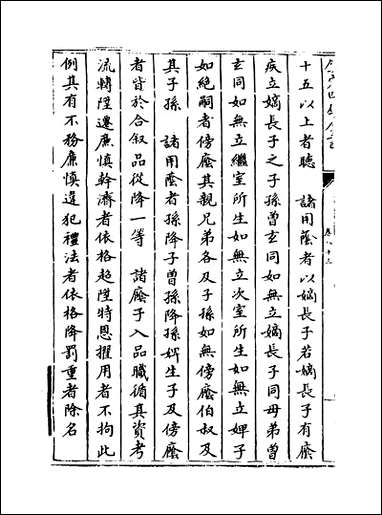 十五以上者聽　諸用蔭者以嫡長子若嫡長子有廢
疾立嫡長子之子孫曾玄同如無立嫡長子同母弟曾
玄同如無立繼室所生如無立次室所生如無立婢子
如絶嗣者傍廕其親兄弟各及子孫如無傍廕伯叔及
其子孫　諸用蔭者孫降子曾孫降孫婢生子及傍廕
者皆於合叙品從降一等　諸廕子入品職循其資考
流轉陞遷廉慎幹濟者依格超陞特恩擢用者不拘此
例其有不務廉慎違犯禮法者依格降罰重者除名